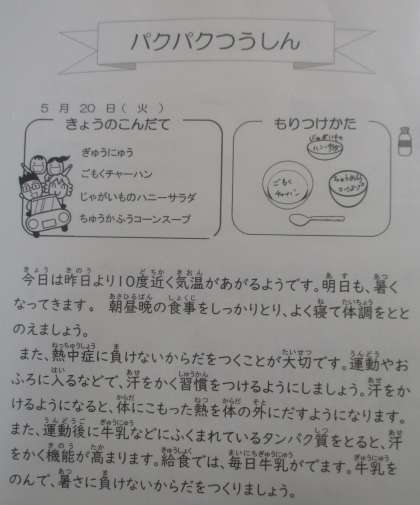 パクパクつうしん
５月２０日（火）
きょうのこんだて
ぎゅうにゅう
ごもくチャーハン
じゃがいものハニーサラダ
ちゅうかふうコーンスープ
もりつけかた
じゃがいもの
ハニーサラダ
ごもく
チャーハン
ちゅうかふう
コーンスープ
今日は昨日より１０度近く気温があがるようです。明日も、暑く
なってきます。 朝昼晩の食事をしっかりとり、よく寝て体調をとと
のえましょう。
また、熱中症に負けないからだをつくことが大切です。運動やお
ふろに入るなどで、汗をかく習慣をつけるようにしましょう。汗をか
けるようになると、体にこもった熱を体の外にだすようになります。
また、運動後に牛乳などにふくまれているタンパク質をとると、汗
をかく機能が高まります。給食では、毎日牛乳がでます。牛乳を
のんで、暑さに負けないからだをつくりましょう。